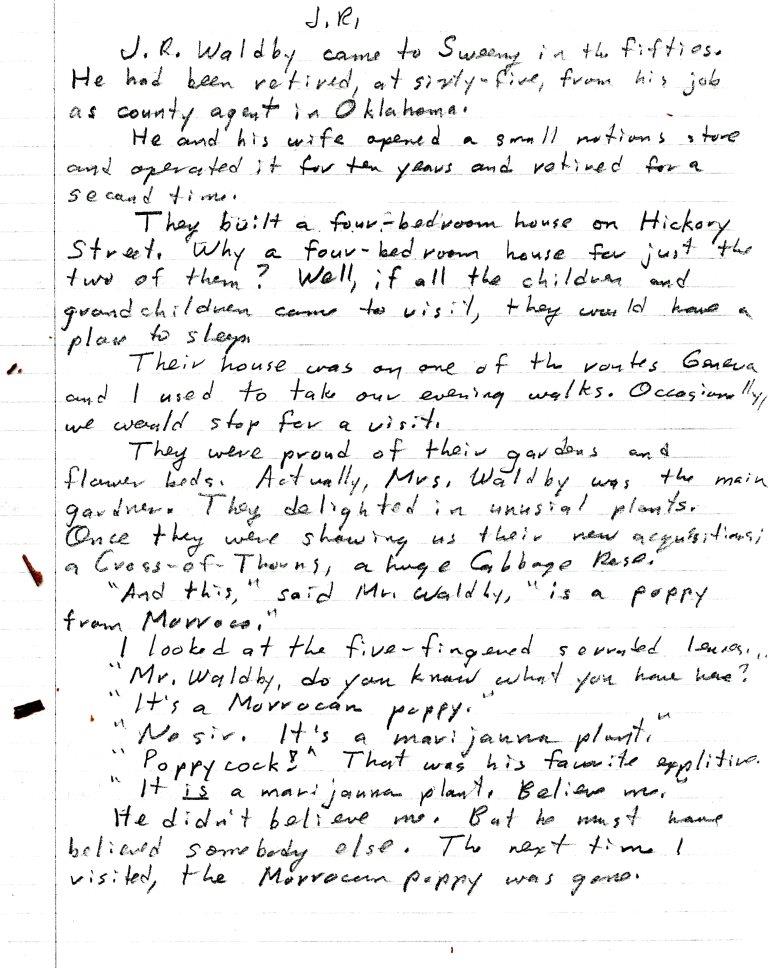 J.R.
J.R. Waldby came to Sweeny in the fifties.
He had been retired, at sixty-five, from his job
as county agent in Oklahoma.
He and his wife opened a small notions store
and operated it for ten years and retired for a
second time.
They built a four-bedroom house on Hickory
Street. Why a four-bedroom house for just the
two of them? Well, if all the children and
grandchildren came to visit, they would have a
place to sleep.
Their house was on one of the routes Geneva
and I used to take our evening walks. Occasionally,
we would stop for a visit.
They were proud of their gardens and
flower beds. Actually, Mrs. Waldby was the main
gardner. They delighted in unusial plants.
Once they were showing us their new acquisitions;
a Cross-of-Thorns, a huge Cabbage Rose.
"And this," said Mr. Waldby, "is a poppy
from Morroco."
I looked at the five-fingered serrated leaves...
"Mr. Waldby, do you know what you have here?
"It's a Morrocan poppy."
"No sir. It's a marijanna plant."
"Poppycock!" That was his favorite explitive.
"It is a marijanna plant. Believe me."
He didn't believe me. But he must have
believed somebody else. The next time I
visited, the Morrocan poppy was gone.